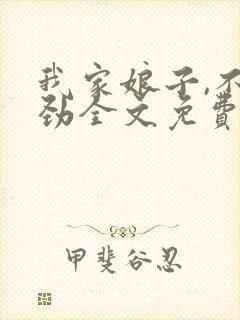 我家娘子,不
劲全文免费
甲斐谷忍